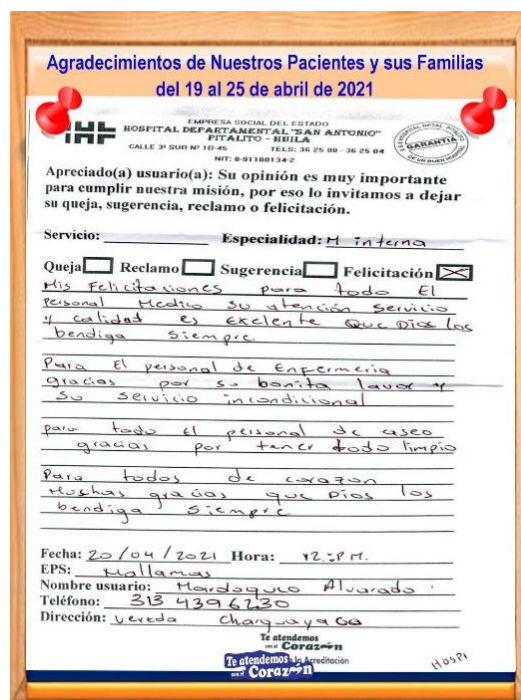 Agradecimientos de Nuestros Pacientes y sus Familias
del 19 al 25 de abril de 2021
EMPRESA SOCIAL DEL ESTADO
HOSPITAL DEPARTAMENTAL "SAN ANTONIO"
PITALITO - HUILA
CALLE 3ª SUR Nº 1B-45 TELS: 36 25 00 - 36 25 04
NIT: 891180134-2
GARANTIA
DE UN BUEN HOSPITAL
Apreciado(a) usuario(a): Su opinión es muy importante
para cumplir nuestra misión, por eso lo invitamos a dejar
su queja, sugerencia, reclamo o felicitación.
Servicio: Especialidad: M interna
Queja Reclamo Sugerencia Felicitación X
Mis Felicitaciones para todo El
personal Medico su atención servicio
y calidad es exelente Que Dios los
bendiga siempre.
Para El personal de Enfermeria
gracias por su bonita lavor y
su servicio incondicional
para todo el personal de aseo
gracias por tener todo limpio
Para todos de corazon
Muchas gracias que Dios los
bendiga siempre
Fecha: 20/04/2021 Hora: 12:PM.
EPS: Mallamas
Nombre usuario: Mardoqueo Alvarado
Teléfono: 313 4396230
Dirección: vereda Charguayaco
Te atendemos
con el Corazón
Te atendemos la Acreditación
con el Corazón
HOSPI